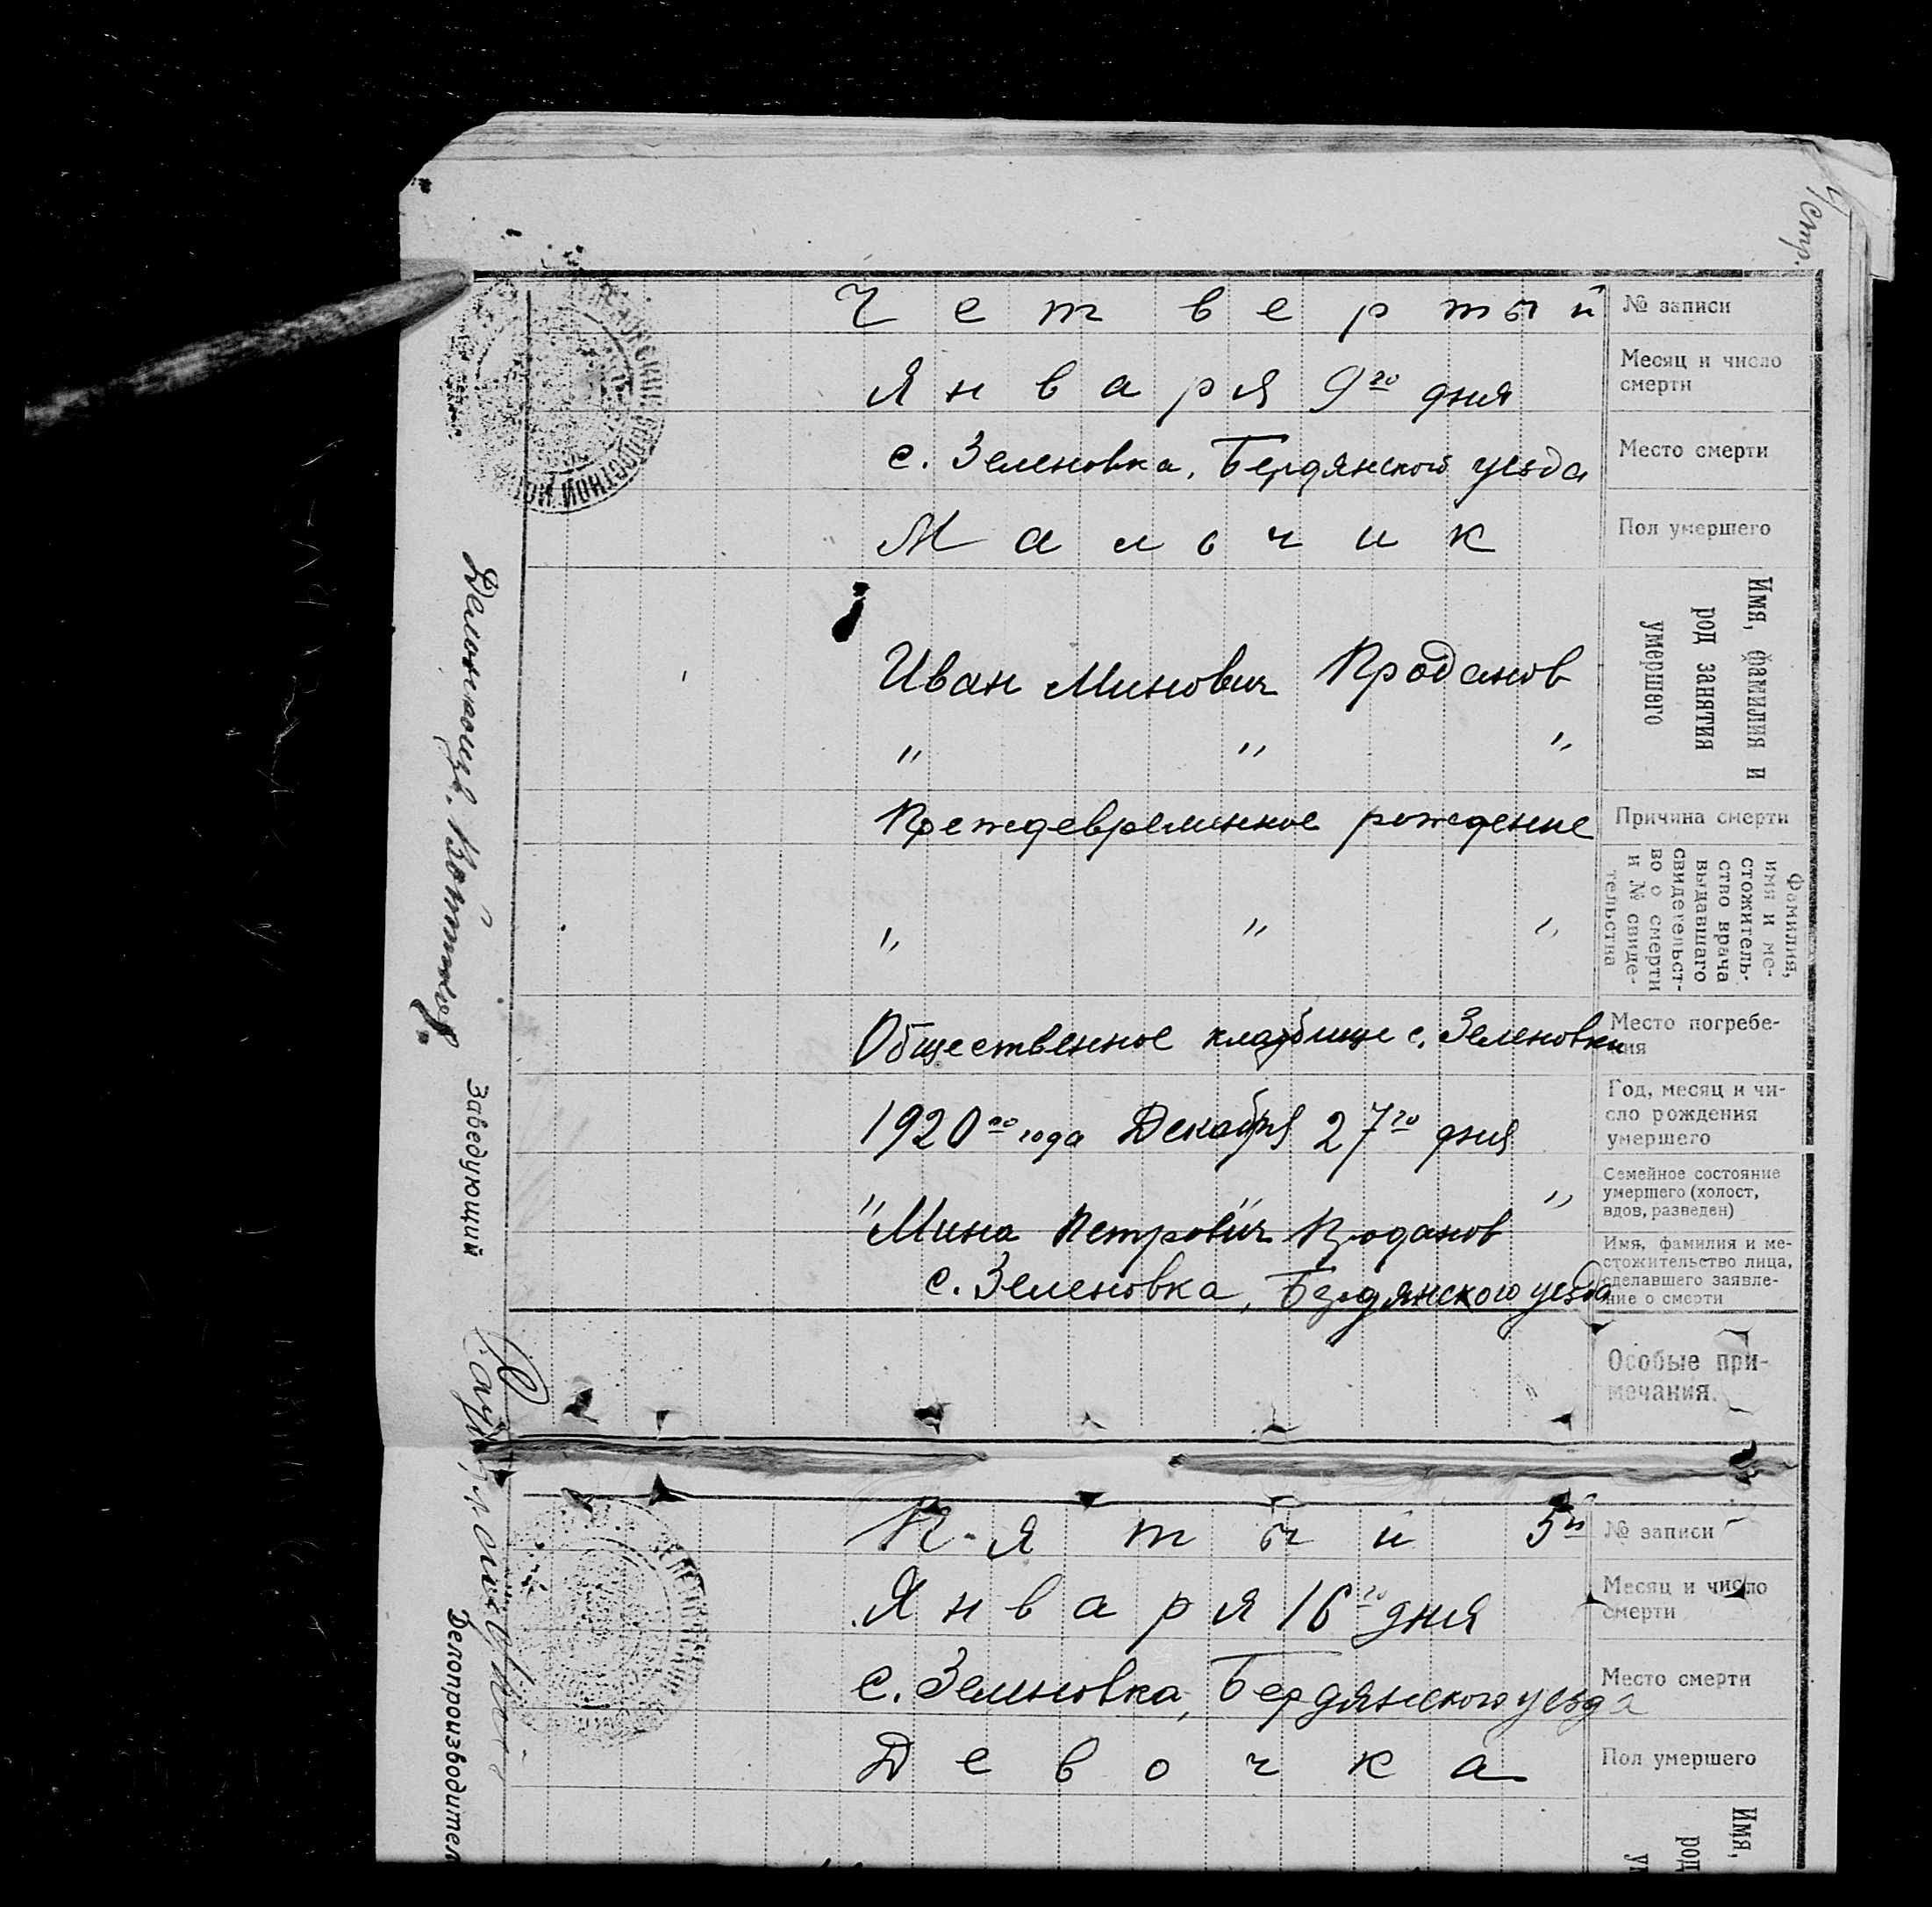 стр.
Четвертый
№ записи
Января 9го дня
Месяц и число
смерти
с. Зеленовка, Бердянской уезда
Место смерти
Мальчик
Пол умершего
Имя, фамилия и
род занятия
умершего
Иван Минович Проданов
" " "
Преждевременное рождение
Причина смерти
Фамилия,
имя и ме-
стожитель-
ство врача
выдавшаго
свидетельст-
во о смерти
и № свиде-
тельства
" " "
Общественное кладбище с. Зеленовки
Место погребе-
ния
1920го года Декабря 27го дня
Год, месяц и чи-
сло рождения
умершего
" " "
Семейное состояние
умершего (холост,
вдов, разведен)
Мина Петрович Проданов
с. Зеленовка, Бердянского уезда
Имя, фамилия и ме-
стожительство лица,
сделавшего заявле-
ние о смерти
Особые при-
мечания.
Заведующий
Пятый 5й
№ записи
Января 16го дня
Месяц и число
смерти
с. Зеленовка, Бердянского уезда
Место смерти
Девочка
Пол умершего
Имя,
род
Делопроизводител